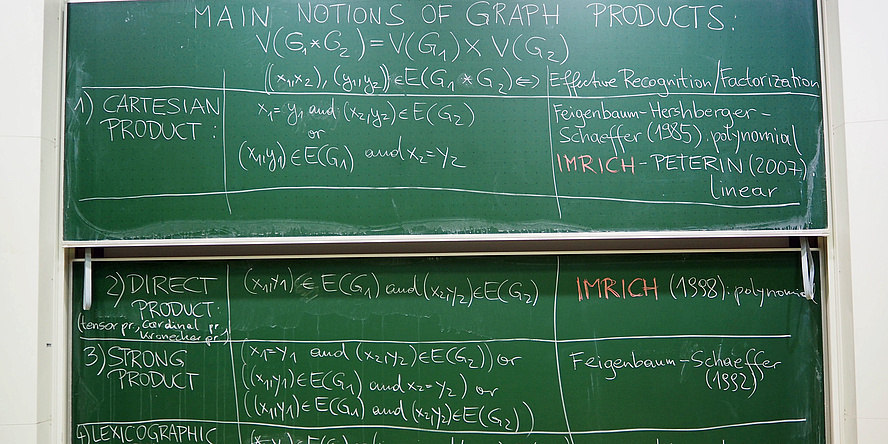 MAIN NOTIONS OF GRAPH PRODUCTS:
V(G₁*G₂)=V(G₁)×V(G₂)
((x₁,x₂), (y₁,y₂))∈E(G₁*G₂)⇔ Effective Recognition/Factorization
1) CARTESIAN PRODUCT:
x₁=y₁ and (x₂,y₂)∈E(G₂)
or
(x₁,y₁)∈E(G₁) and x₂=y₂
Feigenbaum-Hershberger-
Schaeffer (1985): polynomial
IMRICH-PETERIN (2007)
linear
2) DIRECT
PRODUCT:
(tensor pr., cardinal pr.
Kronecker pr.)
(x₁,y₁)∈E(G₁) and (x₂,y₂)∈E(G₂)
IMRICH (1998): polynomial
3) STRONG
PRODUCT
(x₁=y₁ and (x₂,y₂)∈E(G₂)) or
((x₁,y₁)∈E(G₁) and x₂=y₂) or
((x₁,y₁)∈E(G₁) and (x₂,y₂)∈E(G₂))
Feigenbaum-Schaeffer
(1992)
4) LEXICOGRAPHIC